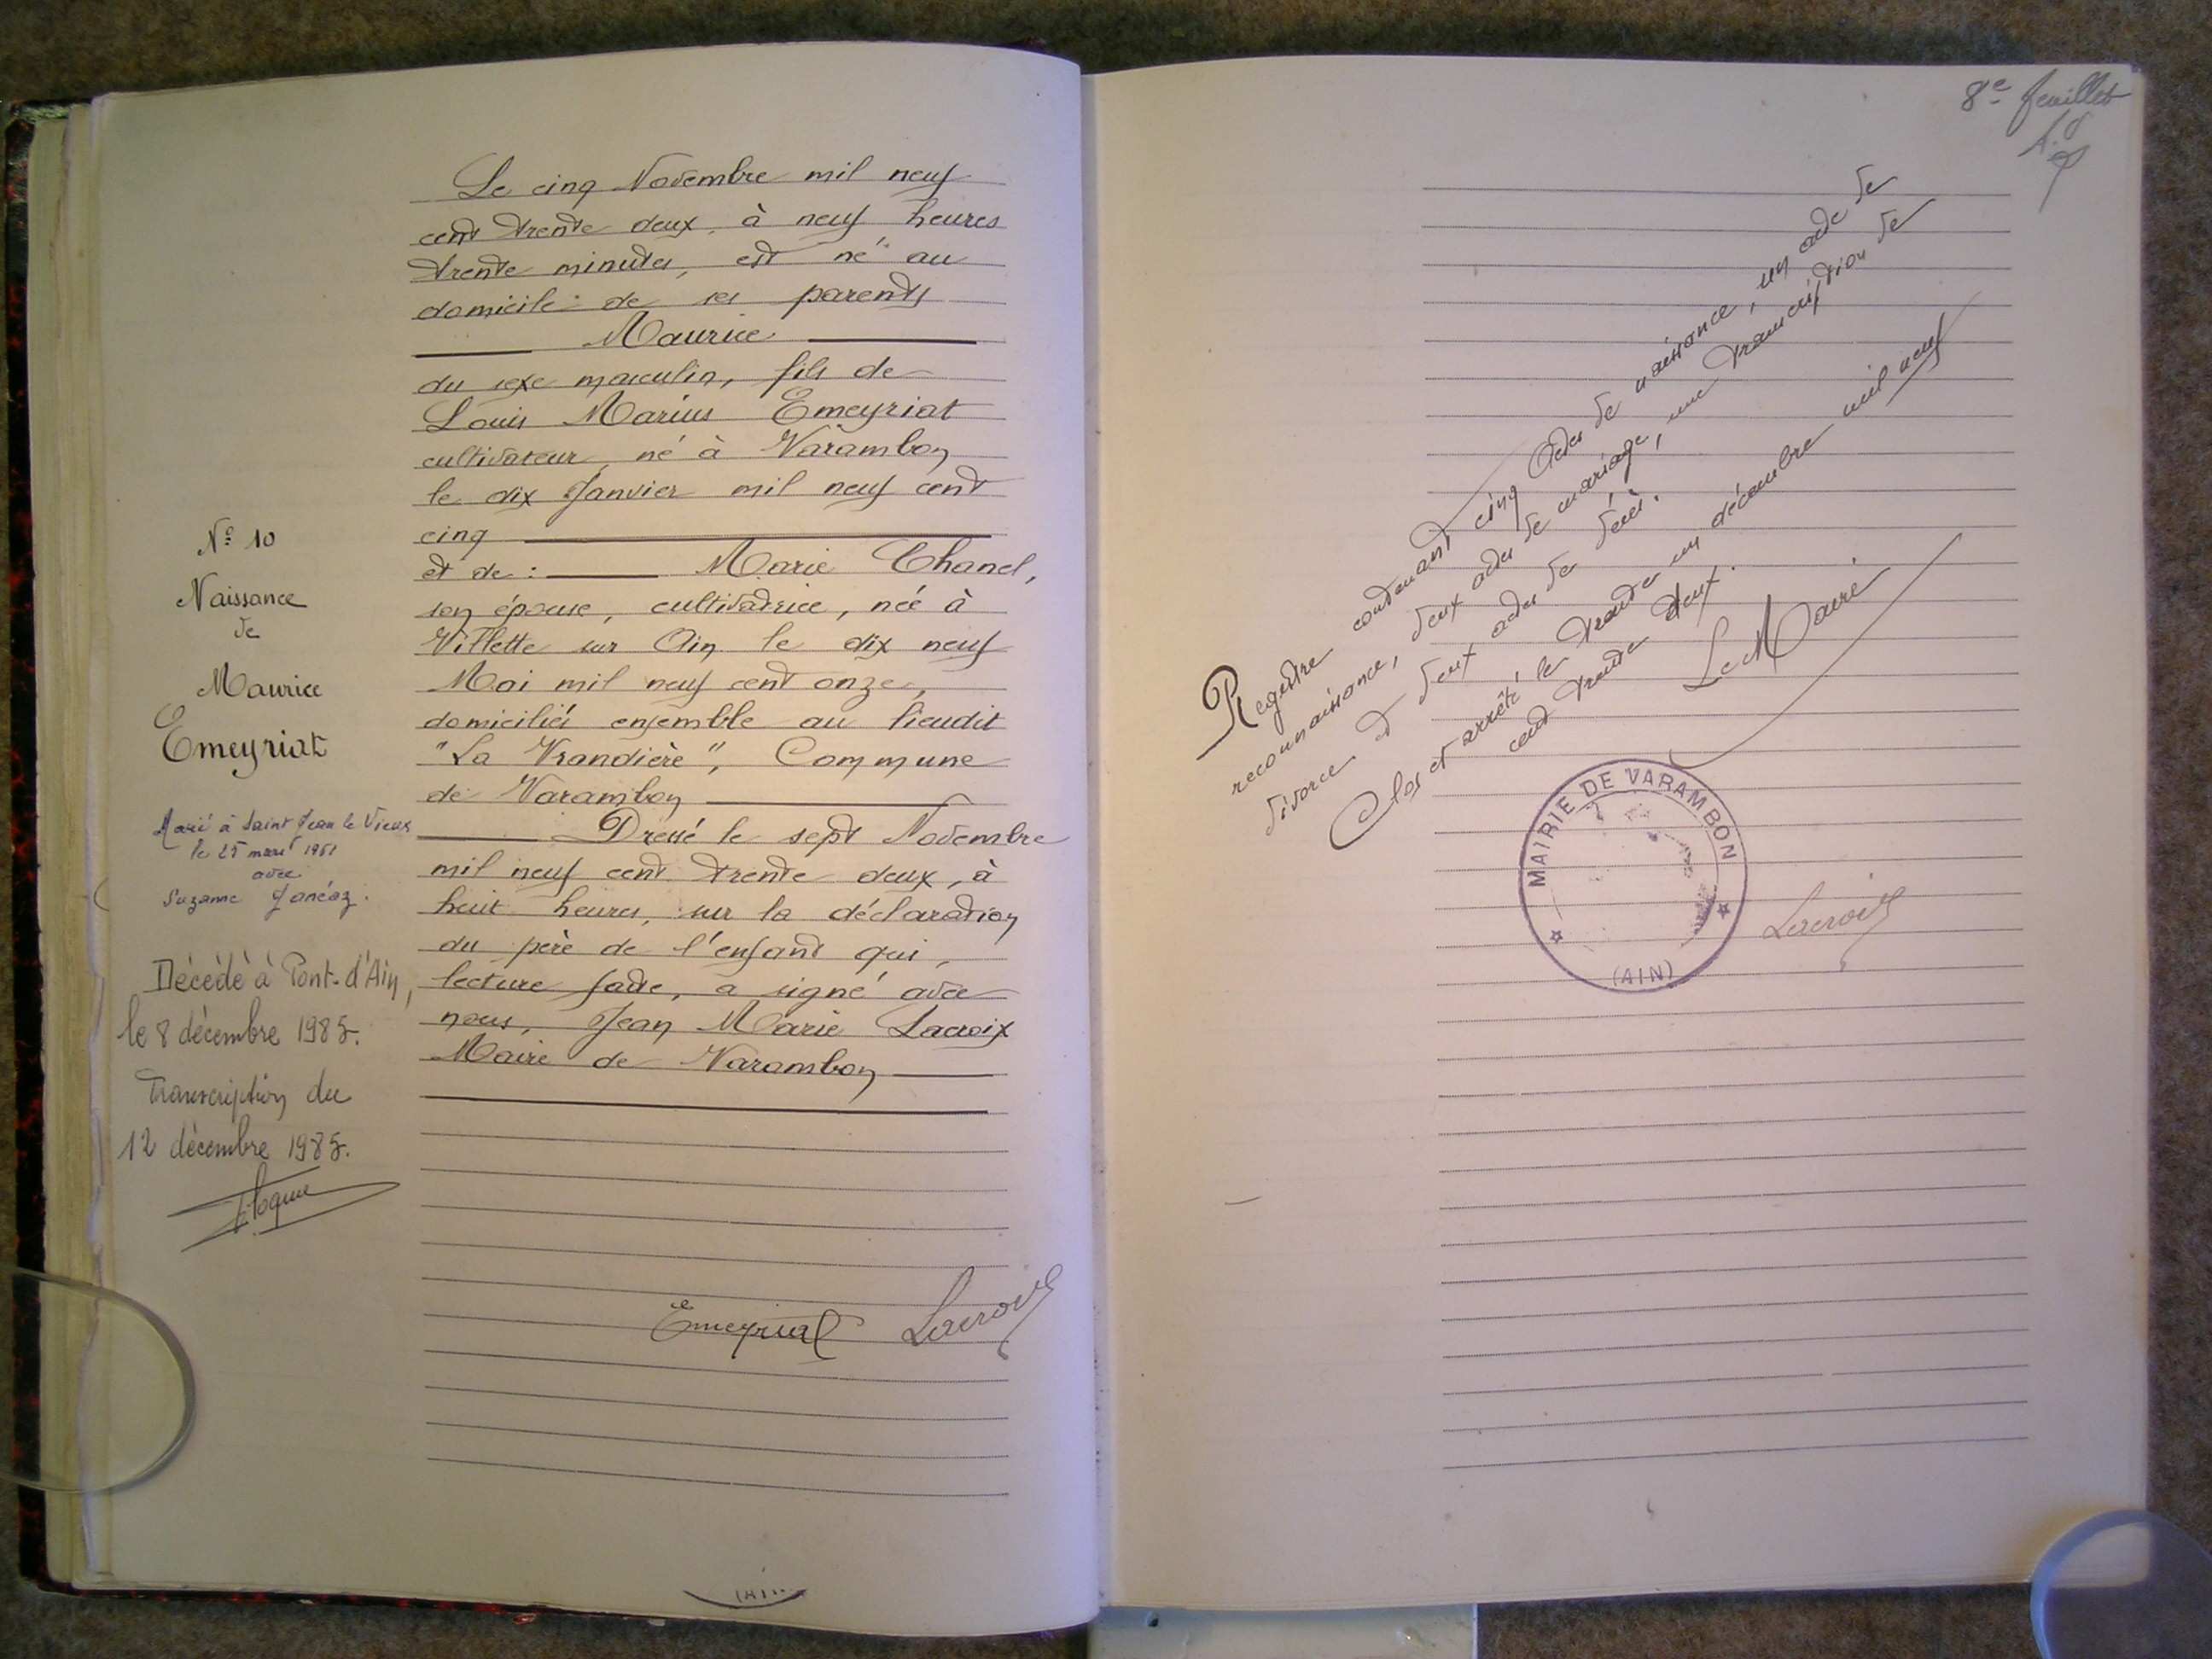 Nº 10
Naissance
de
Maurice
Emeyriat
Marié à Saint Jean le Vieux
le 25 mars 1961
avec
Suzanne Janéaz.
Décédé à Pont-d'Ain,
le 8 décembre 1985.
Transcription du
12 décembre 1985.
Le cinq Novembre mil neuf
cent trente deux, à neuf heures
trente minutes, est né au
domicile de ses parents
Maurice
du sexe masculin, fils de
Louis Marius Emeyriat
cultivateur, né à Varambon
le dix Janvier mil neuf cent
cinq
et de : Marie Chanel,
son épouse, cultivatrice, née à
Villette sur Ain le dix neuf
Mai mil neuf cent onze,
domiciliés ensemble au lieudit
"La Vrandière", Commune
de Varambon
Dressé le sept Novembre
mil neuf cent trente deux, à
huit heures, sur la déclaration
du père de l'enfant qui,
lecture faite, a signé avec
nous, Jean Marie Lacroix
Maire de Varambon
Emeyriat Lacroix
(AIN)
8e feuillet
Registre contenant cinq actes de naissance, un acte de
reconnaissance, deux actes de mariage, une transcription de
divorce et deux actes de décès.
Clos et arrêté le trente un décembre mil neuf
cent trente deux.
Le Maire
MAIRIE DE VARAMBON
(AIN)
Lacroix